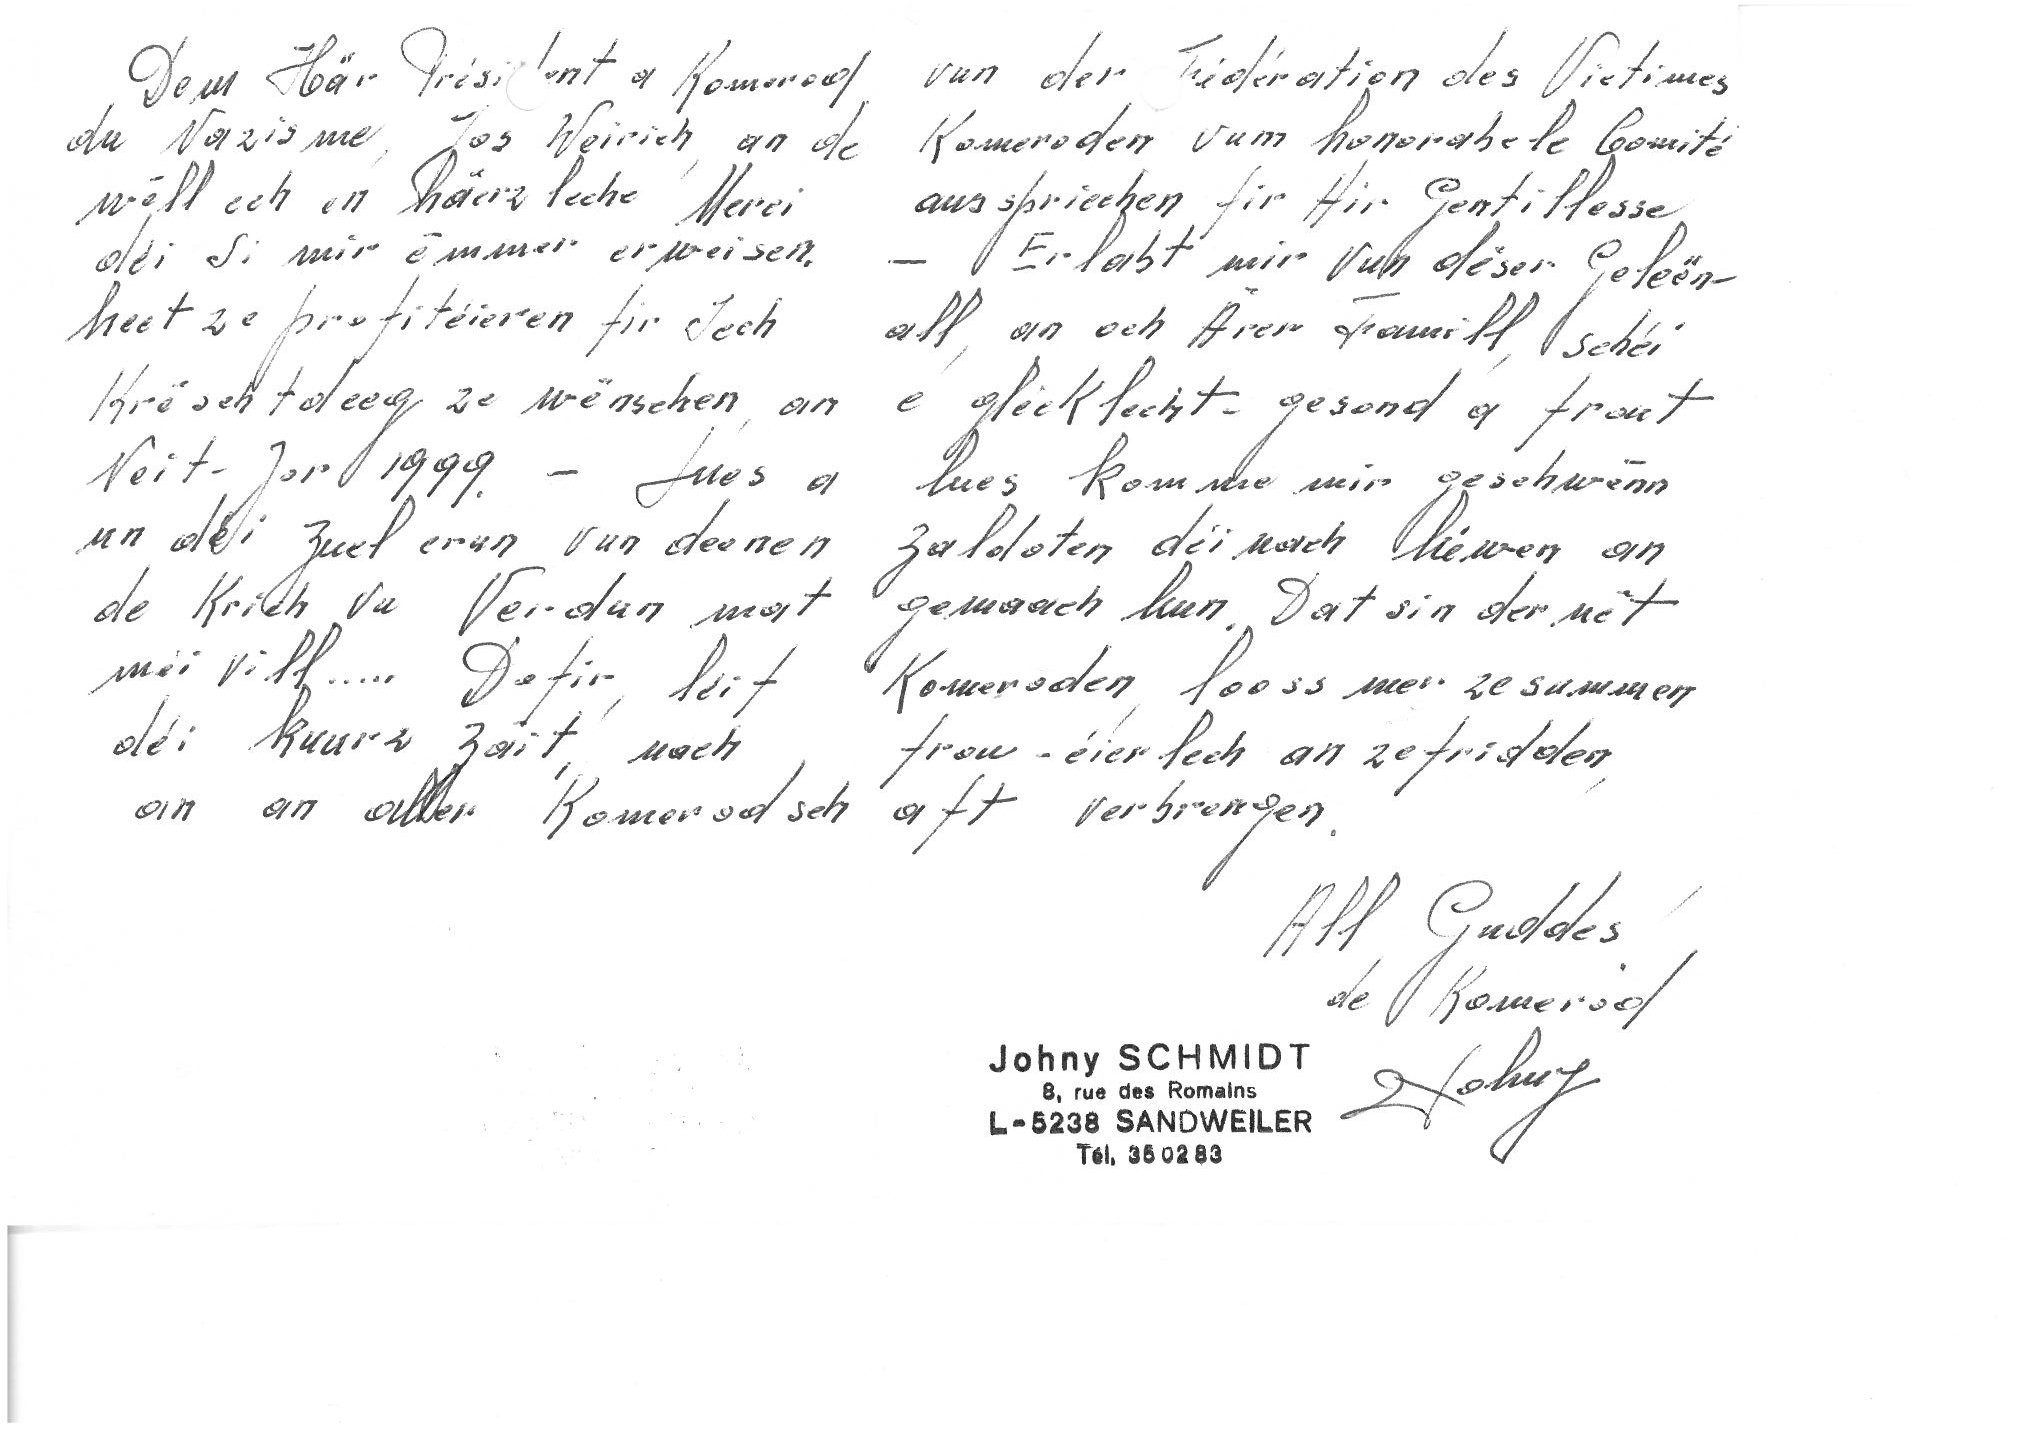 Dem Här Président a Komerod vun der Fédération des Victimes
du Nazisme, Jos Weirich, an de Komeroden vum honorabele Comité
wëll ech en häerzleche Merci aussspriechen fir Hir Gentillesse
déi Si mir ëmmer erweisen. — Erlabt mir vun dëser Geleën-
heet ze profitéieren fir Iech all, an och Ärer Famill, schéi
Krëschtdeeg ze wënschen, an e glécklecht - gesond a frout
Neit-Jor 1999. — Lues a lues komme mir geschwënn
un déi Zuel erun vun deenen Zaldoten déi nach liewen an
de Krich vu Verdun mat gemaach hun. Dat sin der nët
méi vill..... Dofir, léif Komeroden, looss mer zesummen
déi kuurz Zäit, nach, frou - éierlech an zefridden,
an an aller Komerodschaft verbrengen.
All Guddes
de Komerod
Johny
Johny SCHMIDT
8, rue des Romains
L-5238 SANDWEILER
Tél. 350283